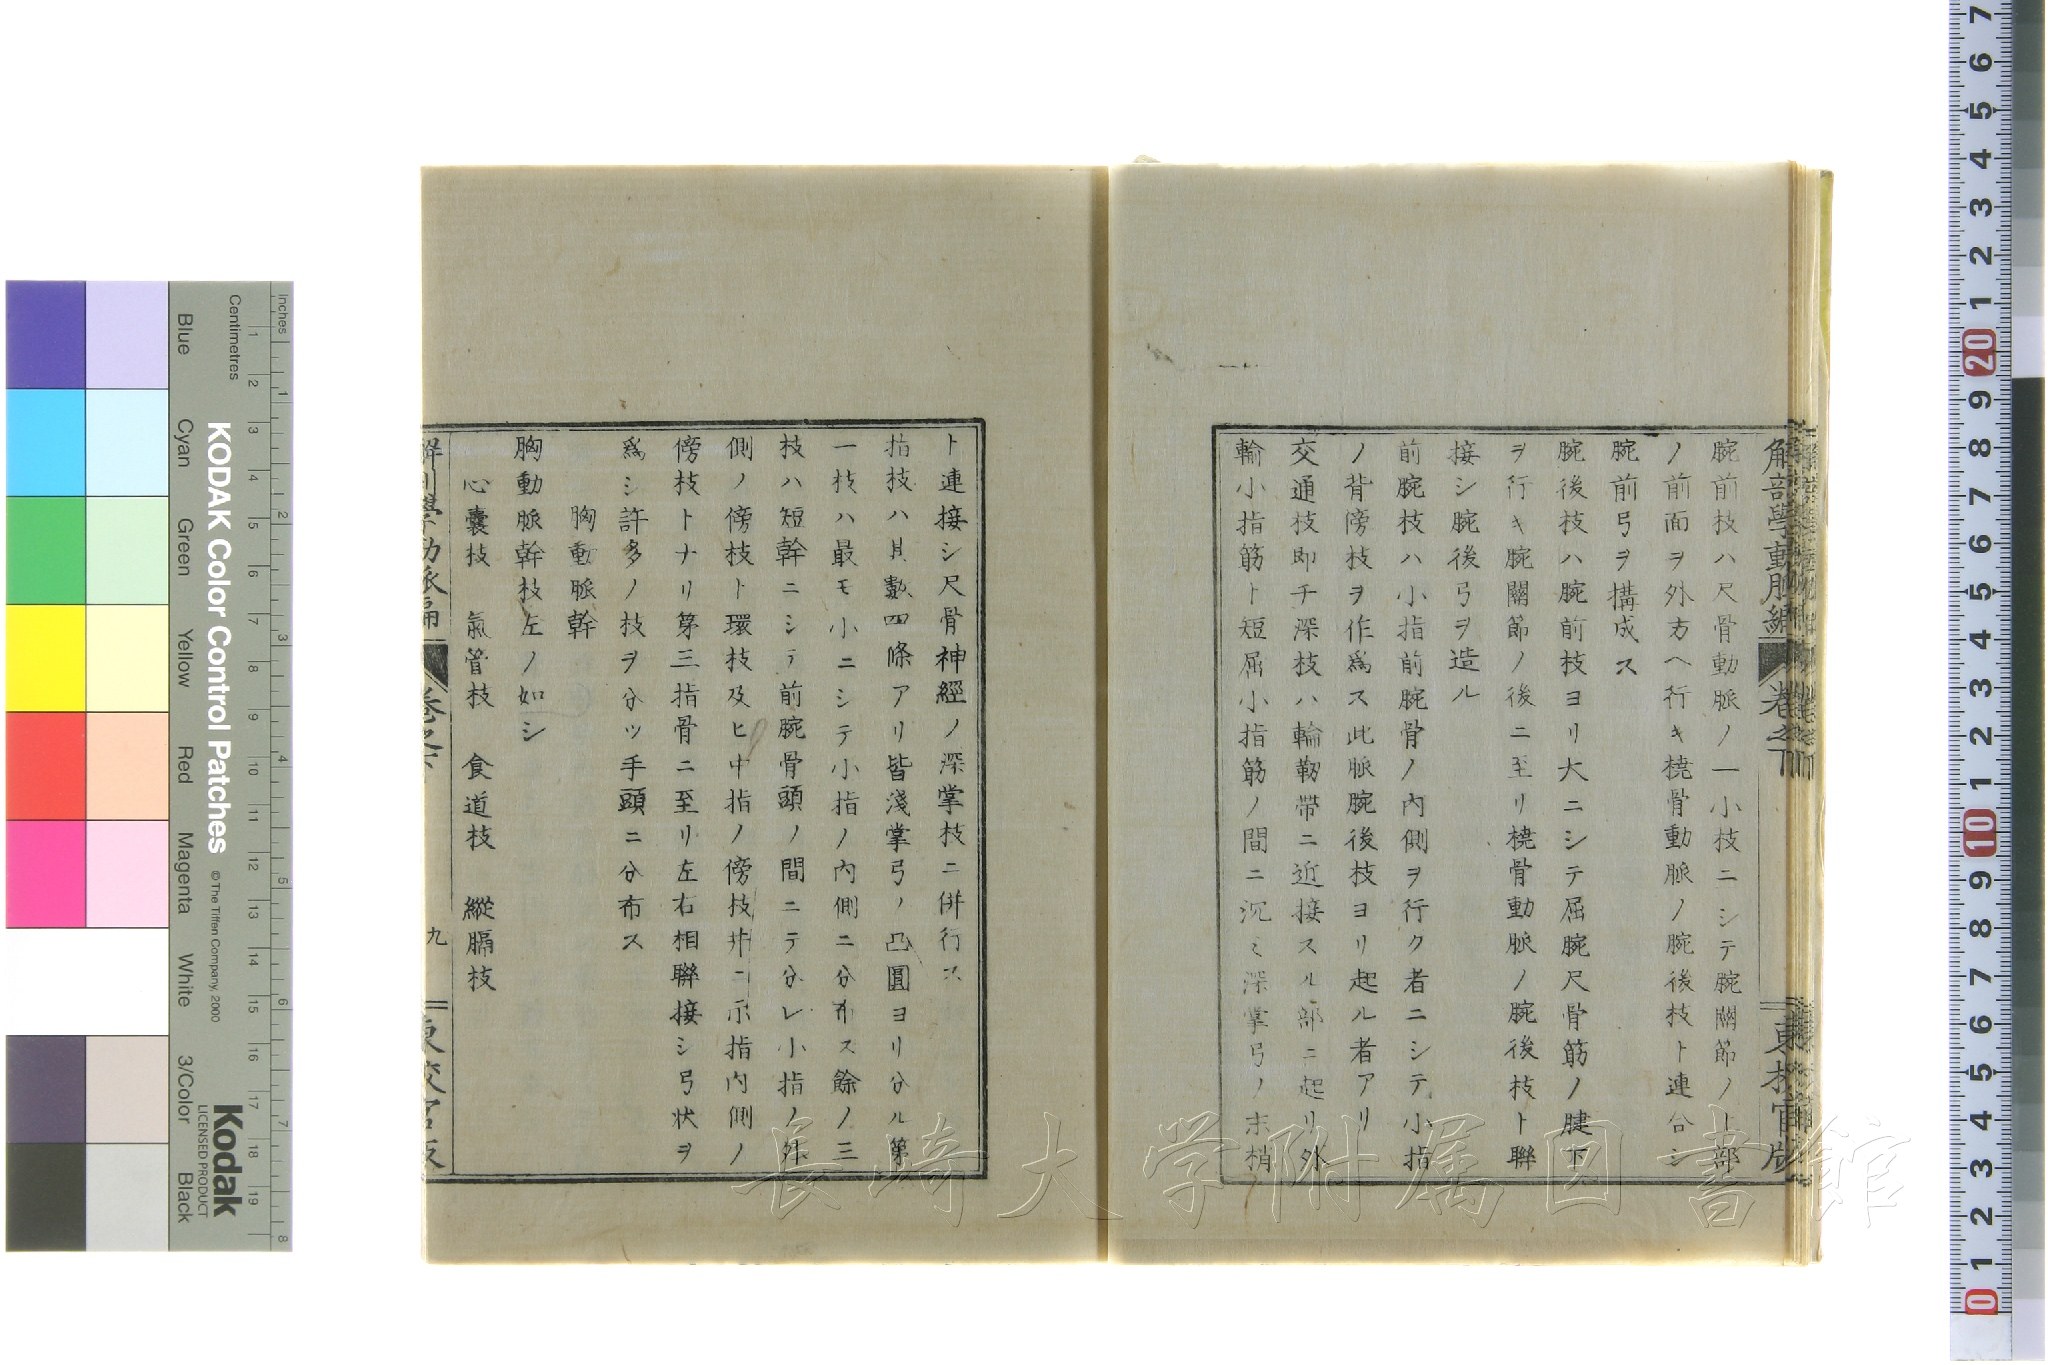 解剖學動脈編 卷之下 東校官版
腕前枝ハ尺骨動脈ノ一小枝ニシテ腕關節ノ上部
ノ前面ヲ外方ヘ行キ橈骨動脈ノ腕後枝ト連合シ
腕前弓ヲ構成ス
腕後枝ハ腕前枝ヨリ大ニシテ屈腕尺骨筋ノ腱下
ヲ行キ腕關節ノ後ニ至リ橈骨動脈ノ腕後枝ト聯
接シ腕後弓ヲ造ル
前腕枝ハ小指前腕骨ノ內側ヲ行ク者ニシテ小指
ノ背傍枝ヲ作爲ス此脈腕後枝ヨリ起ル者アリ
交通枝即チ深枝ハ輪靭帶ニ近接スル部ニ起リ外
輸小指筋ト短屈小指筋ノ間ニ沉ミ深掌弓ノ末梢
ト連接シ尺骨神經ノ深掌枝ニ併行ス
指枝ハ其數四條アリ皆淺掌弓ノ凸圓ヨリ分ル第
一枝ハ最モ小ニシテ小指ノ內側ニ分布ス餘ノ三
枝ハ短幹ニシテ前腕骨頭ノ間ニテ分レ小指ノ外
側ノ傍枝ト環枝及ヒ中指ノ傍枝并ニ示指內側ノ
傍枝トナリ第三指骨ニ至リ左右相聯接シ弓状ヲ
爲シ許多ノ枝ヲ分ツ手頭ニ分布ス
胸動脈幹
胸動脈幹枝左ノ如シ
心囊枝 氣管枝 食道枝 縱膈枝
解剖學動脈編 卷之下 九 東校官版
長崎大学附属図書館
KODAK Color Control Patches
© The Tiffen Company, 2000
Kodak
LICENSED PRODUCT
Inches
Centimetres
Blue
Cyan
Green
Yellow
Red
Magenta
White
3/Color
Black